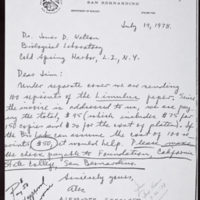 SAN BERNARDINO
July 19, 1978.
Dr. James D. Watson
Biological Laboratory
Cold Spring Harbor, L.I., N.Y.
Dear Jim:
Under separate cover we are sending
100 reprints of the Limulus paper. Since
the invoice is addressed to us, we are pay
ing the total, $95 (which includes $75 for
150 copies and $20 for the cost of plates). If
the Bio Lab can assume the cost of 100 re
prints ($50) it would help. Please make
the check payable to Foundation, California
State College, San Bernardino.
Sincerely yours,
Alex
Pay $50